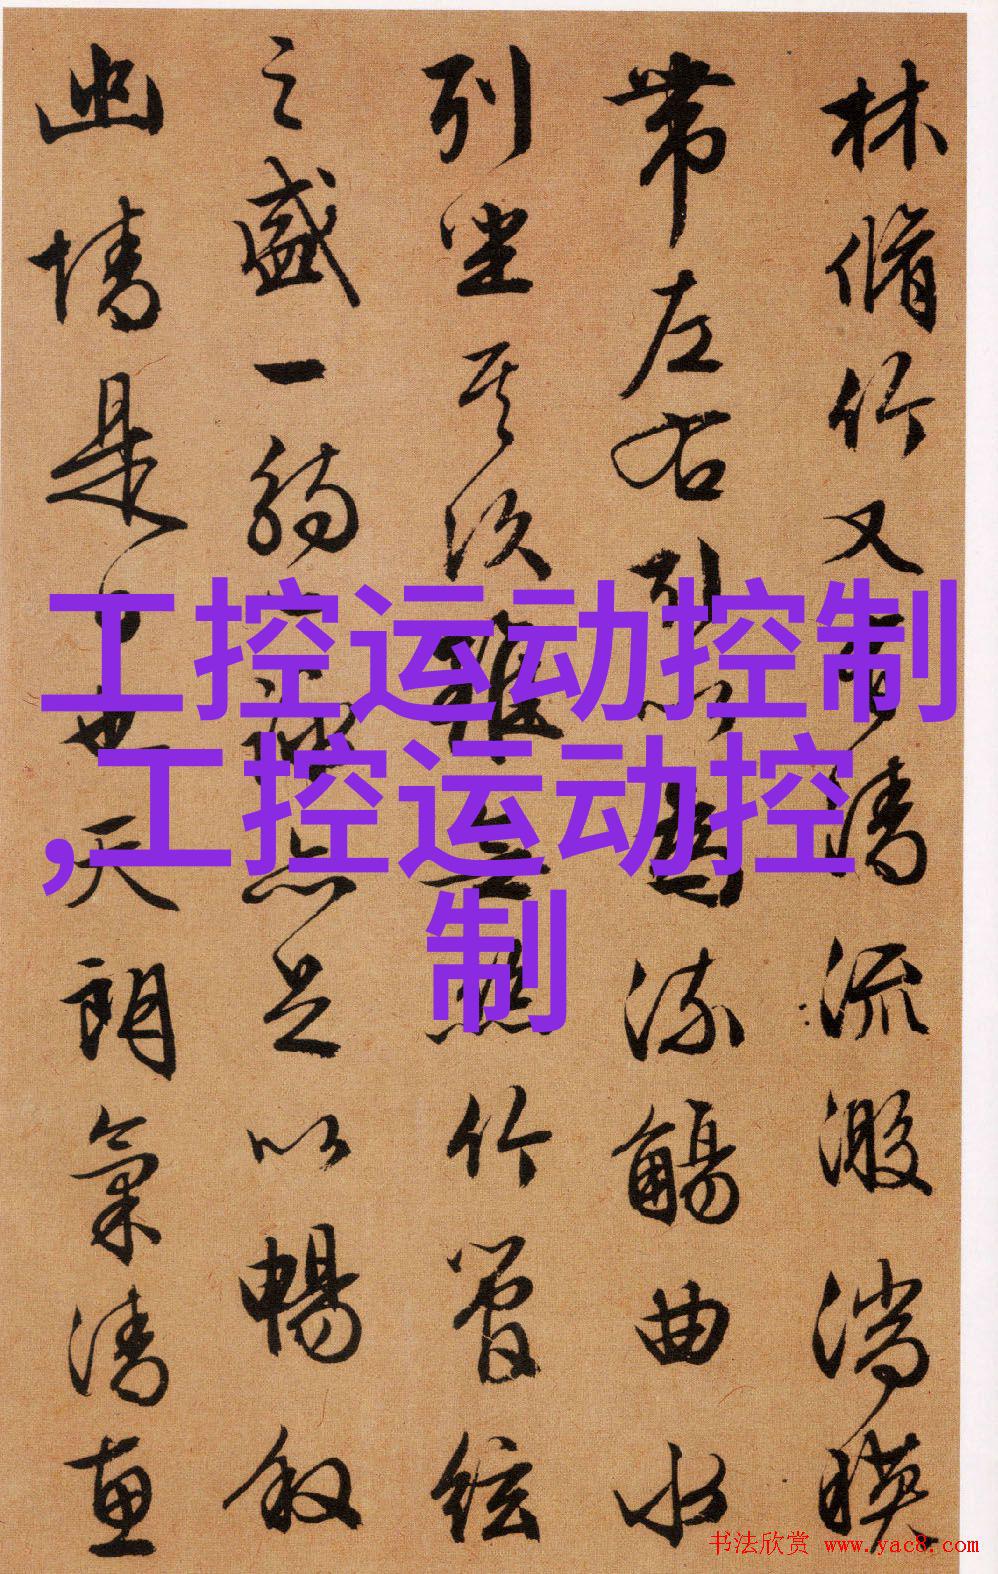 林脩竹又有清流激湍暎
帶左右引以為流觴曲水
列坐其次雖無絲竹管絃
之盛一觴一詠亦足以暢叙
幽情是日也天朗氣清惠
工控运动控制
,工控运动控
制
书法欣赏 www.yac8.com